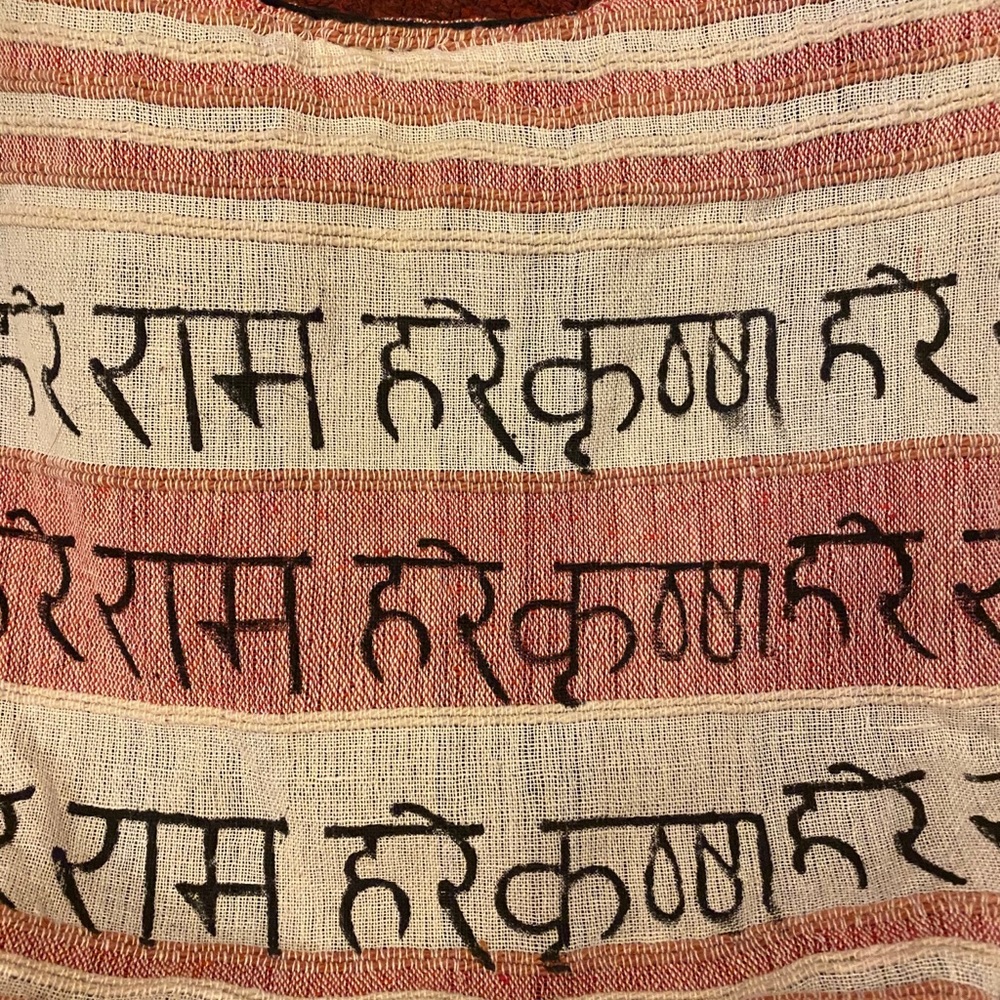 हरे राम हरे कृष्ण हरे
हरे राम हरे कृष्ण हरे
राम हरे कृष्ण हरे